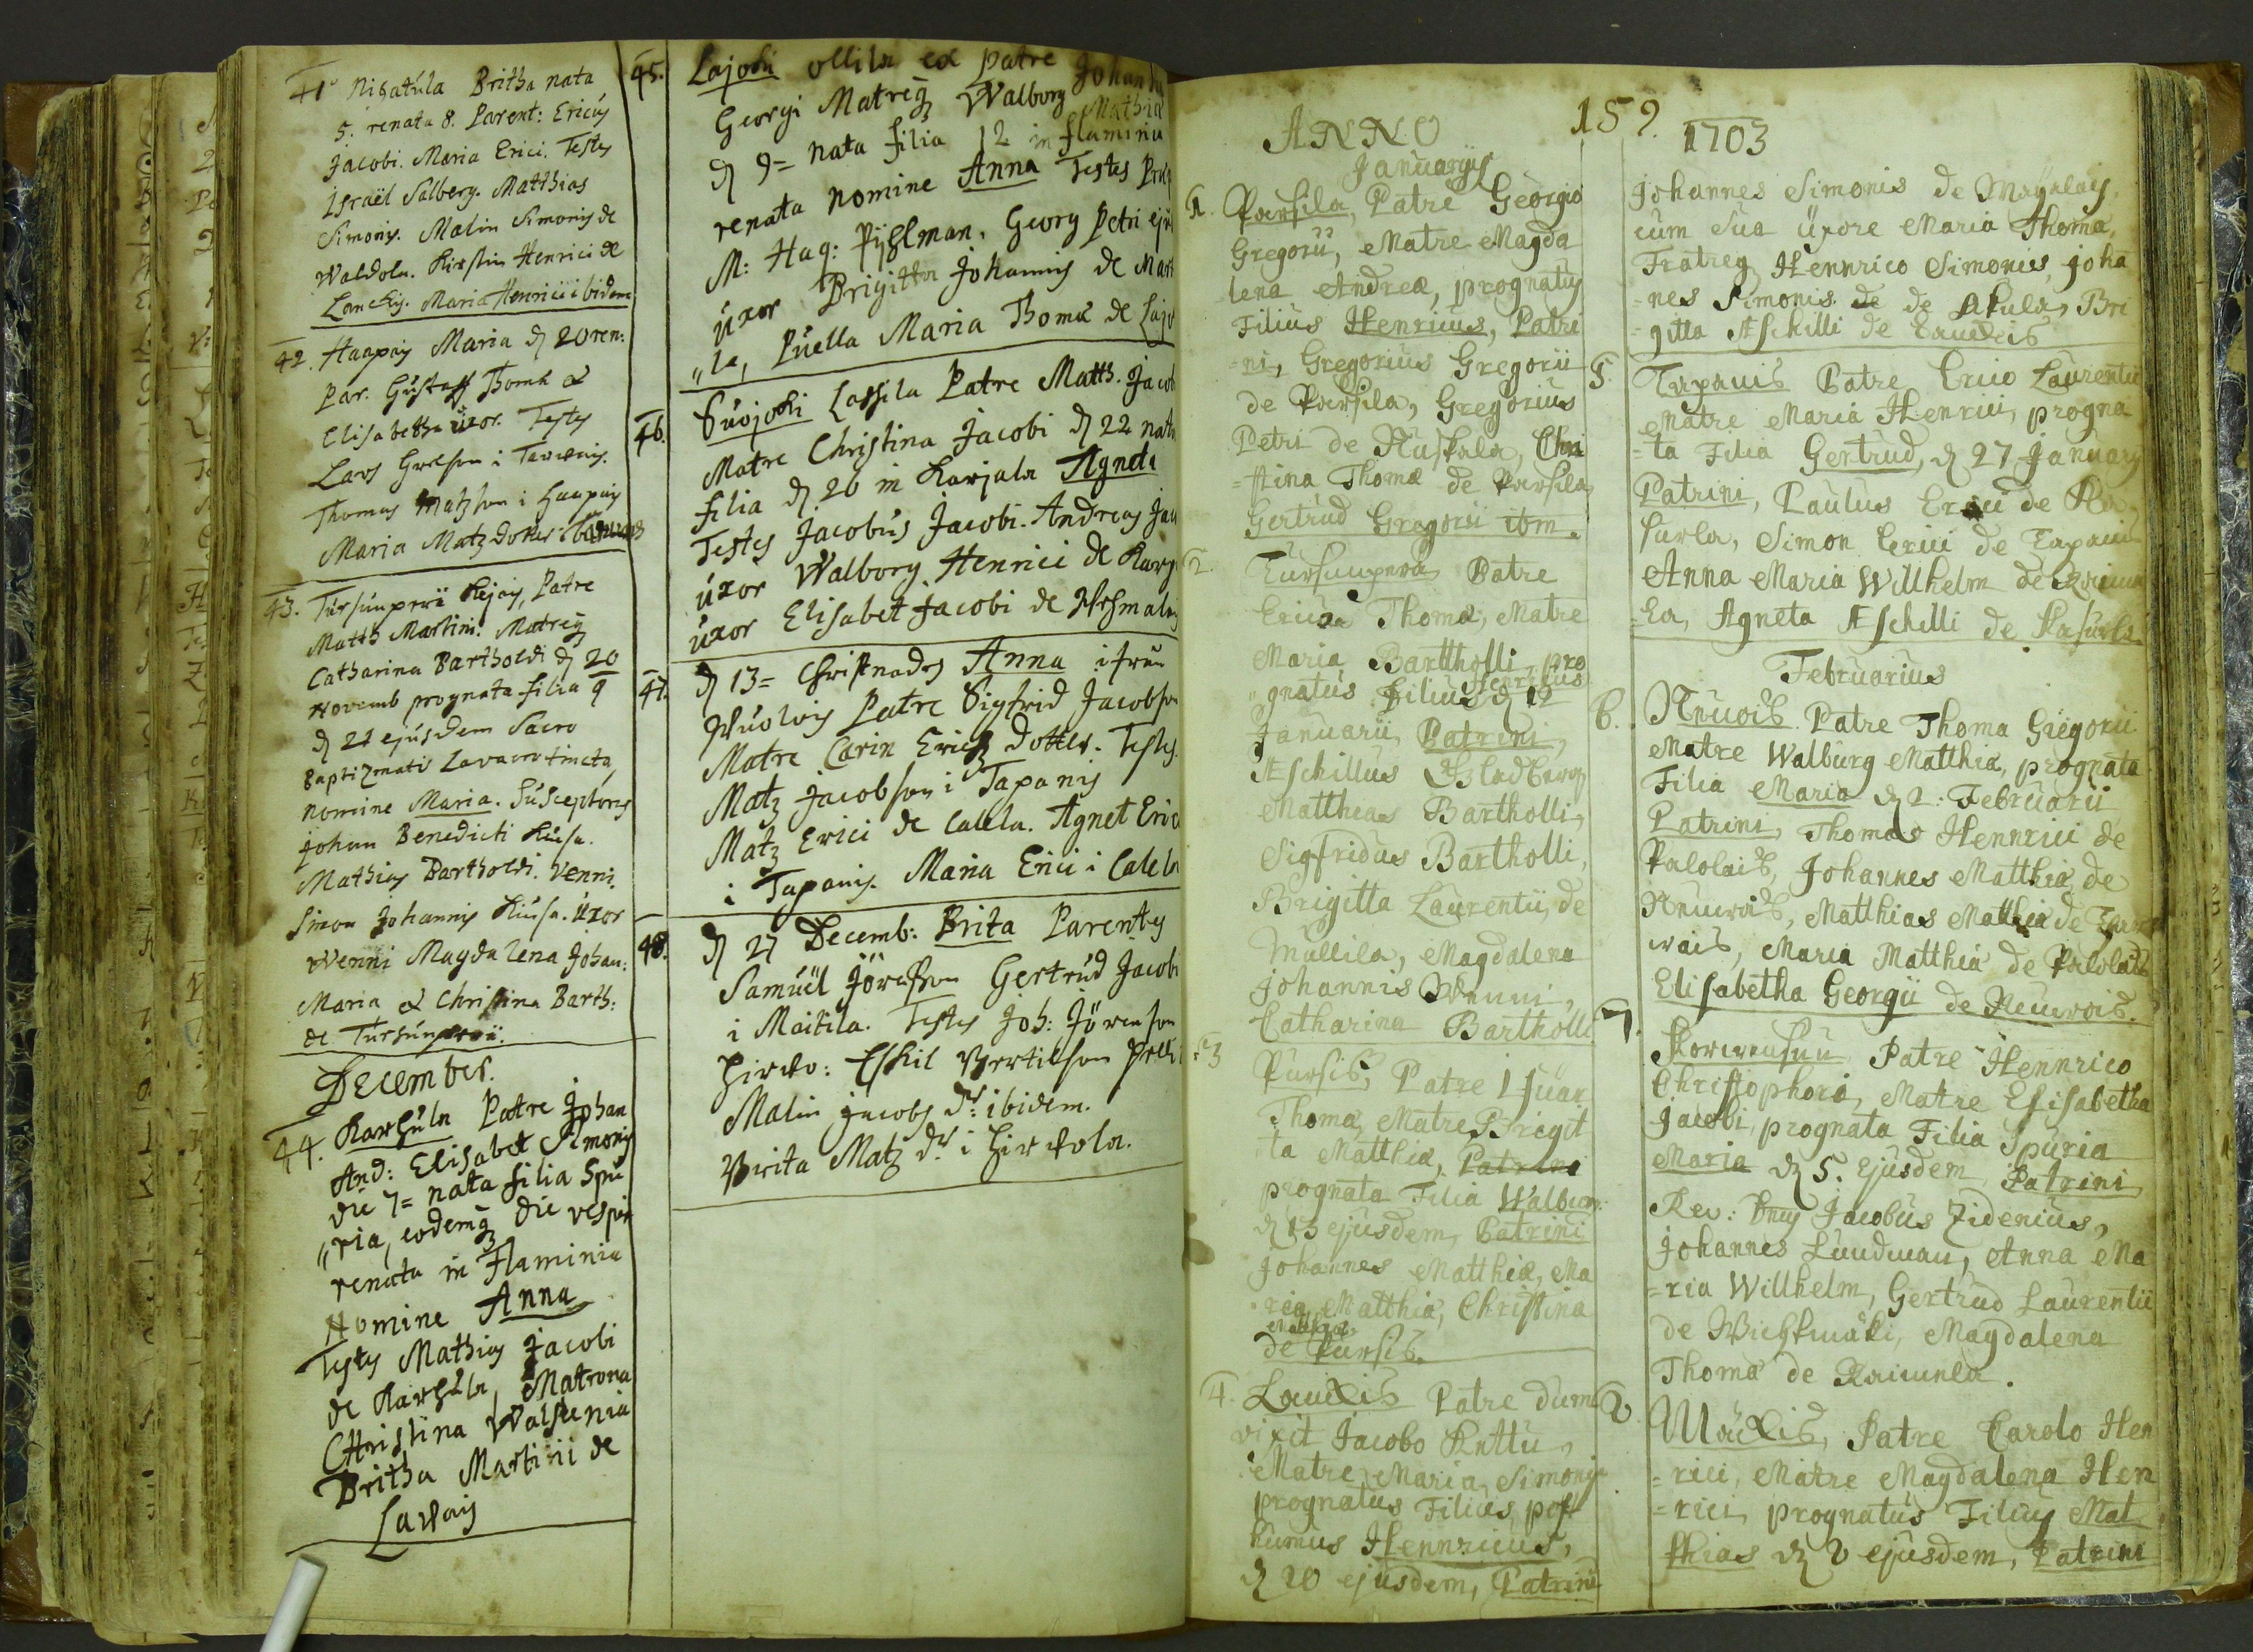 41. Nihatula Britha nata
5. renata 8. Parent: Ericus
Jacobi. Maria Erici. Testes
Israël Salberg. Matthias
Simonis. Malin Simonis de
Waldola. Kirstin Henrici de
Maria Henrici ibidem
42. Haapais Maria d 20 ren:
Par. Gustaff Thomæ &
Elisabetha uxor. Testes
Lars
Thomas Matzson i Haapais
Maria Matz dotter i
43. Tursunperä Rejais, Patre
Matth Martini. Matreq
Catharina Bartholdi d 20
Novemb prognata filia q
d 21 ejusdem Sacro
Baptizmatis Lavacro tincta
nomine Maria. Susceptores
Johan Benedicti Kiusa.
Mathias Bartholdi. Venni.
Simon Johannis Kiusa. Uxor
Wenni Magdalena Johan:
Maria & Christina Barth:
de Tursunperä.
December.
44. Karhula Patre Johan
And: Elisabet Simonis
die 7= nata filia Spu
„ria, eodemq die vesperi
renata in Flaminia
Nomine Anna
Testes Mathias Jacobi
de Karhula, Matrona
Christina Walstenia
Britha Martini de

45. Lajoki ollila ex Patre Johan
Georgi Matreq Walborg Mathiæ
d 9= nata filia 12 in flaminia
renata nomine Anna Testes
M: Hag: Pijhlman. Georg Petri
uxor Brigitta Johannis de
„la, Puella Maria Thomæ de
46. Suojoki Lassila Patre Matth. Jacob
Matre Christina Jacobi d 22 nata
filia d 26 in Karjala Agneta
Testes Jacobus Jacobi. Andreas
uxor Walborg Henrici de
uxor Elisabet Jacobi de
47. d 13= Christnades Anna ifrån
Patre Sigfrid Jacobson
Matre Carin Erichz dotter. Testes.
Matz Jacobson i Tapanis
Matz Erici de Calela. Agnet Eric
i Tapanis. Maria Erici i Calela
48. d 27 Decemb: Brita Parentes
Samuel Jöranson Gertrud Jacobi
i Maitila. Testes Joh: Jöranson
Eskil Bertilson
Malin Jacobs dr: ibidem.
Brita Matz dr. i

159.
ANNO 1703
Januarius
1. Parsila, Patre Georgio
Gregorii, Matre Magda
lena Andreæ, prognatus
Filius Henricus, Patri
=ni, Gregorius Gregorii
de Parsila, Gregorius
Petri de Ruskala, Chri
=stina Thomæ de Parsila
Gertrud Gregorii ibm.
2. Tursunperä Patre
Erico Thomæ, Matre
Maria Bartholli pro
Henricus
gnatus Filius d 12
Januarii, Patrini,
Æschillus Bladberg
Mattheas Bartholli,
Sigfridus Bartholli,
Brigitta Laurentii, de
Mullila, Magdalena
Johannis Wenni,
Catharina Bartholli
3 Pursis, Patre Ifuar
Thomæ, Matre Brigit
ta Matthiæ, Patrini
prognata Filia Walbor:
d 15 ejusdem, Patrini
Johannes Matthiæ, Ma
ria Matthiæ, Christina
de Pursis.
4. Laukis Patre dum
vixit Jacobo Kuttu,
Matre Maria Simonis
prognatus Filius post
humus Hennricus,
d 20 ejusdem, Patrini

Johannes Simonis de
cum sua Uxore Maria Thomæ,
Fratreq Hennrico Simonis, Joha
=nes Simonis de de Akula, Bri
=gitta Æschilli de Laukis
5. Tapanis Patre Erico Laurentii
Matre Maria Henrici, progna
=ta Filia Gertrud, d 27 January
Patrini, Paulus Erici de
Simon Erici de Tapanis
Anna Maria Willhelm de
Agneta Æschilli de
Februarius
6. Patre Thoma Gregorii
Matre Walburg Matthiæ, prognata
Filia Maria d 2: Februarii
Patrini, Thomas Hennrici de
Palolais, Johannes Matthiæ de
Matthias Matthiæ de
Maria Matthiæ de Palolais
Elisabetha Georgii de
7. Patre Hennrico
Christophori, Matre Elisabetha
Jacobi, prognata Filia Spuria
Maria d 5. Ejusdem, Patrini
Rev: Jacobus Zidenius,
Johannes Lundman, Anna Ma
=ria Willhelm, Gertrud Laurentii
de Wichkmäki, Magdalena
Thomæ de Raiumla.
8. Mäckis, Patre Carolo Hen
=rici, Matre Magdalena Hen
=rici, prognatus Filius Mat
thias d 8 ejusdem, Patrini